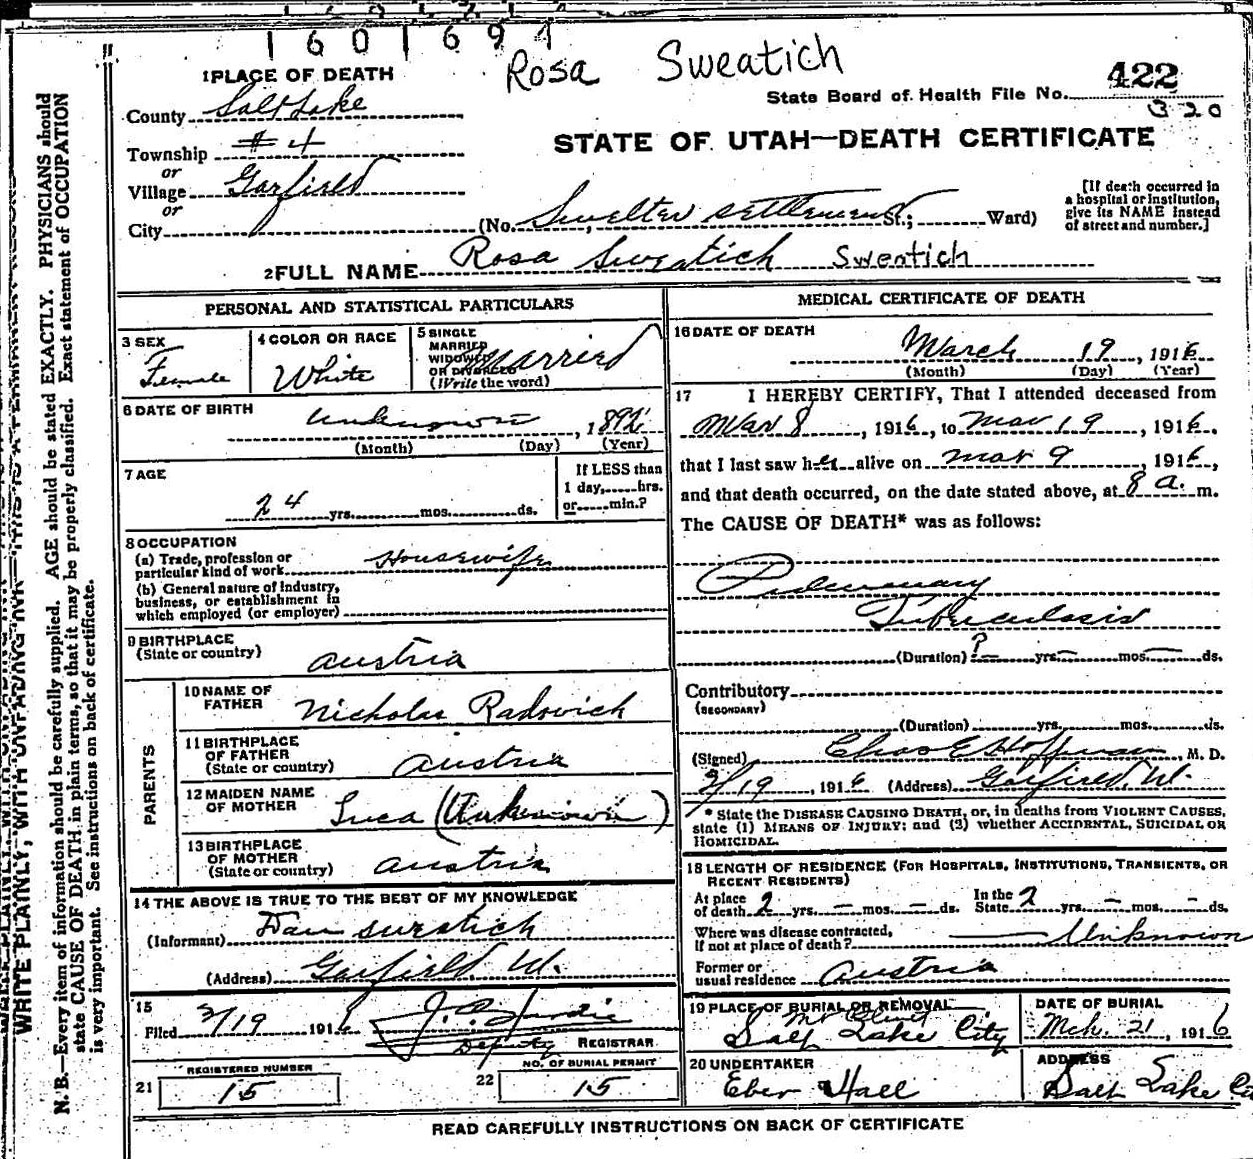 1601691
Rosa Sweatich
422
State Board of Health File No.
320
1 PLACE OF DEATH
County Salt Lake
Township #4
or
Village Garfield
or
City
STATE OF UTAH—DEATH CERTIFICATE
(No. Smelter settlement St.; Ward)
[If death occurred in
a hospital or institution,
give its NAME instead
of street and number.]
2 FULL NAME Rosa Sweatich Sweatich
PERSONAL AND STATISTICAL PARTICULARS
3 SEX
Female
4 COLOR OR RACE
White
5 SINGLE
MARRIED
WIDOWED
OR DIVORCED
(Write the word)
Married
6 DATE OF BIRTH
Unknown, 1892
(Month) (Day) (Year)
7 AGE
24 yrs. mos. ds.
If LESS than
1 day, hrs.
or min.?
8 OCCUPATION
(a) Trade, profession or
particular kind of work Housewife
(b) General nature of industry,
business, or establishment in
which employed (or employer)
9 BIRTHPLACE
(State or country)
Austria
PARENTS
10 NAME OF
FATHER
Nicholas Radovich
11 BIRTHPLACE
OF FATHER
(State or country)
Austria
12 MAIDEN NAME
OF MOTHER
Luca (Unknown)
13 BIRTHPLACE
OF MOTHER
(State or country)
Austria
14 THE ABOVE IS TRUE TO THE BEST OF MY KNOWLEDGE
(Informant) Dan
(Address) Garfield U.
15
Filed 3/19 1916
Deputy REGISTRAR
21
REGISTERED NUMBER
15
22
NO. OF BURIAL PERMIT
15
MEDICAL CERTIFICATE OF DEATH
16 DATE OF DEATH
March 19, 1916
(Month) (Day) (Year)
17 I HEREBY CERTIFY, That I attended deceased from
Mar 8, 1916, to Mar 19, 1916.,
that I last saw her alive on Mar 9, 1916,
and that death occurred, on the date stated above, at 8 a. m.
The CAUSE OF DEATH* was as follows:
Pulmonary
Tuberculosis
(Duration) ? yrs. — mos. — ds.
Contributory
(SECONDARY)
(Duration) yrs. mos. ds.
(Signed) Chas E Hoffman M. D.
3/19, 1916 (Address) Garfield U.
* State the DISEASE CAUSING DEATH, or, in deaths from VIOLENT CAUSES,
state (1) MEANS OF INJURY; and (2) whether ACCIDENTAL, SUICIDAL OR
HOMICIDAL.
18 LENGTH OF RESIDENCE (FOR HOSPITALS, INSTITUTIONS, TRANSIENTS, OR
RECENT RESIDENTS)
At place
of death 2 yrs. — mos. — ds. In the
State 2 yrs. — mos. - ds.
Where was disease contracted,
if not at place of death? Unknown
Former or
usual residence Austria
19 PLACE OF BURIAL OR REMOVAL
Mt Olivet
Salt Lake City
DATE OF BURIAL
Mch. 21, 1916
20 UNDERTAKER
Eber Hall
ADDRESS
Salt Lake
READ CAREFULLY INSTRUCTIONS ON BACK OF CERTIFICATE
WRITE PLAINLY, WITH UNFADING INK—THIS IS A PERMANENT RECORD
N. B.—Every item of information should be carefully supplied. AGE should be stated EXACTLY. PHYSICIANS should
state CAUSE OF DEATH in plain terms, so that it may be properly classified. Exact statement of OCCUPATION
is very important. See instructions on back of certificate.